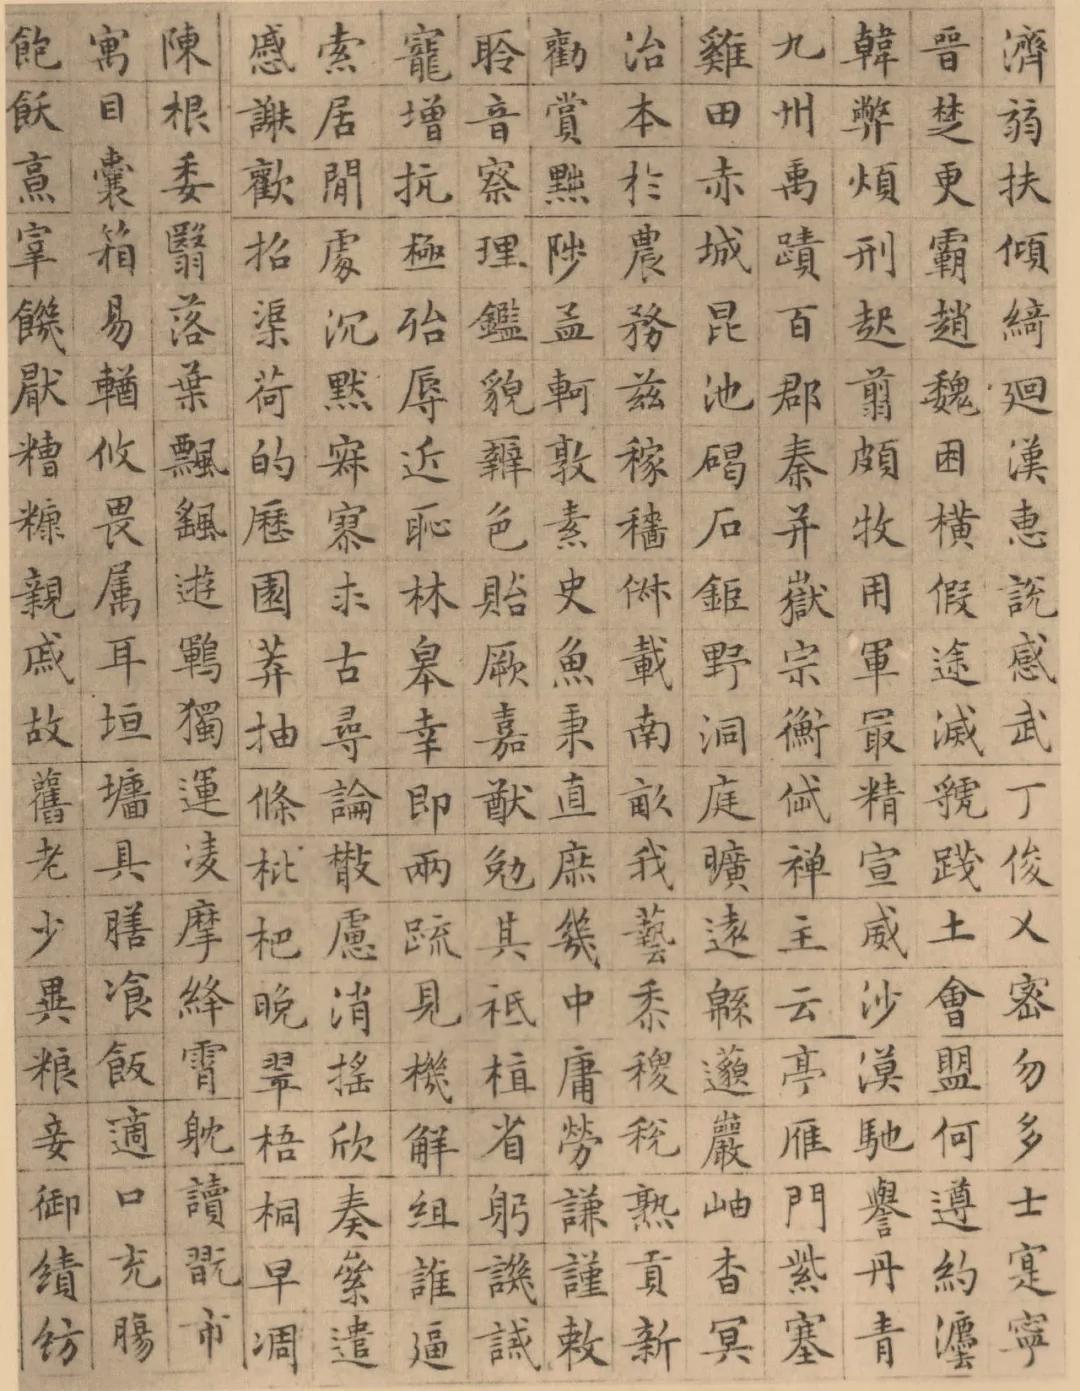 濟弱扶傾綺廻漢惠說感武丁俊乂密勿多士寔寧
晉楚更霸趙魏困橫假途滅虢踐土會盟何遵約灋
韓弊煩刑起翦頗牧用軍最精宣威沙漠馳譽丹青
九州禹蹟百郡秦并嶽宗衡岱禅主云亭雁門紫塞
雞田赤城昆池碣石鉅野洞庭曠遠緜邈巖岫杳冥
治本於農務茲稼穡俶載南畝我藝黍稷稅熟貢新
勸賞黜陟孟軻敦素史魚秉直庶幾中庸勞謙謹敕
聆音察理鑑貌辨色貽厥嘉猷勉其祗植省躬譏誡
寵增抗極殆辱近恥林皋幸即兩疏見機解組誰逼
索居閒處沉默寂寥求古尋論散慮消搖欣奏累遣
慼謝歡招渠荷的歷園莽抽條枇杷晚翠梧桐早凋
陳根委翳落葉飄颻遊鵾獨運凌摩絳霄耽讀翫市
寓目囊箱易輶攸畏属耳垣墻具膳飡飯適口充腸
飽飫烹宰饑厭糟糠親戚故舊老少異粮妾御績紡